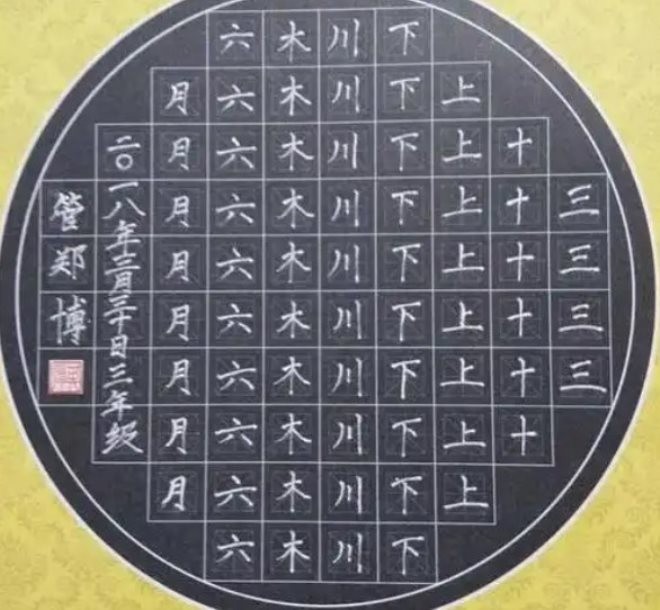 三三三三
十十十十十十
上上上上上上上上
下下下下下下下下下下
川川川川川川川川川川
木木木木木木木木木木
六六六六六六六六六六
月月月月月月月月
二〇一八年三月三十日三年级
管郑博